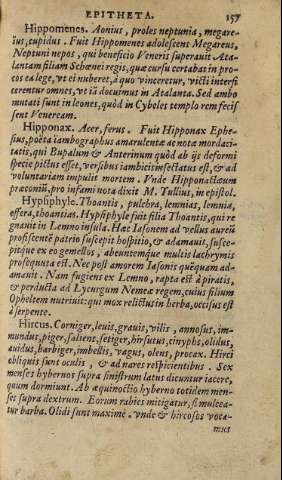 EPITHETA. 157
Hippomenes. Aonius, proles neptunia, megare-
ius, cupidus. Fuit Hippomenes adolescens Megareus,
Neptuni nepos, qui beneficio Veneris superauit Ata-
lantam filiam Schœnei regis, quæ cursu certabat in pro-
cos ea lege, vt ei nuberet, à quo vinceretur, victi interfi
cerentur omnes, vt iā docuimus in Atalanta. Sed ambo
mutati sunt in leones, quòd in Cybeles templo rem fecis
sent Veneream.
Hipponax. Acer, ferus. Fuit Hipponax Ephe-
sius, poëta iambographus amarulentæ ac notæ mordaci-
tatis, qui Bupalum & Anterinum quòd ab ijs deformi
specie pictus esset, versibus iambicis insectatus est, & ad
voluntariam impulit mortem. Vnde Hipponactæum
præconiū, pro infami nota dixit M. Tullius, in epistol.
Hypsiphyle. Thoantis, pulchra, lemnias, lemnia,
effera, thoantias. Hypsiphyle fuit filia Thoantis, qui re
gnauit in Lemno insula. Hæc Iasonem ad vellus aureū
proficiscentē patrio suscepit hospitio, & adamauit, susce-
pitque ex eo gemellos, abeuntemque multis lachrymis
prosequuta est. Nec post amorem Iasonis quēquam ad-
amauit. Nam fugiens ex Lemno, rapta est à piratis,
& perducta ad Lycurgum Nemeæ regem, cuius filium
Opheltem nutriuit: qui mox relictus in herba, occisus est
à serpente.
Hircus. Corniger, leuis, grauis, vilis, annosus, im-
mundus, piger, saliens, setiger, hirsutus, cinyphs, olidus,
auidus, barbiger, imbellis, vagus, olens, procax. Hirci
obliquis sunt oculis, & ad nares respicientibus. Sex
menses hybernos supra sinistrum latus dicuntur iacere,
quum dormiunt. Ab æquinoctio hyberno totidem men-
ses supra dextrum. Eorum rabies mitigatur, si mulcea-
tur barba. Olidi sunt maximè. vnde & hircosos voca-
mus